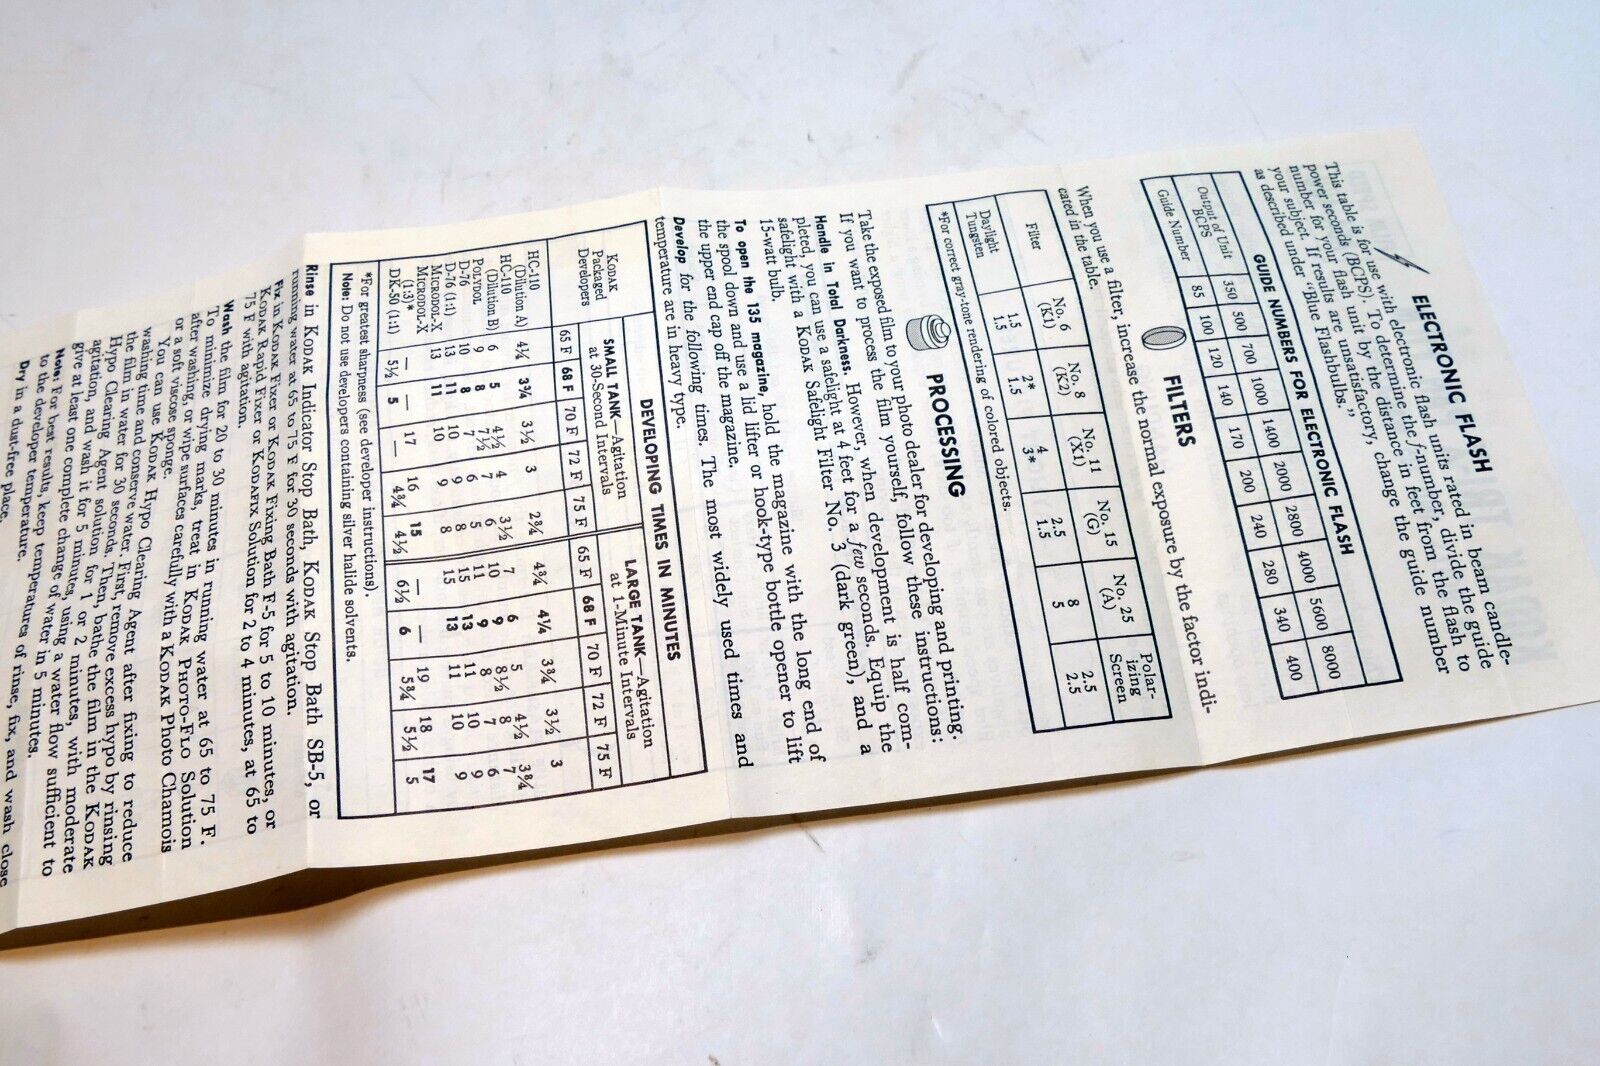 ELECTRONIC FLASH
This table is for use with electronic flash units rated in beam candle-
power seconds (BCPS). To determine the f-number, divide the guide
number for your flash unit by the distance in feet from the flash to
your subject. If results are unsatisfactory, change the guide number
as described under "Blue Flashbulbs."
GUIDE NUMBERS FOR ELECTRONIC FLASH
Output of Unit BCPS 350 500 700 1000 1400 2000 2800 4000 5600 8000
Guide Number 85 100 120 140 170 200 240 280 340 400
FILTERS
When you use a filter, increase the normal exposure by the factor indi-
cated in the table.
Filter No. 6 (K1) No. 8 (K2) No. 11 (X1) No. 15 (G) No. 25 (A) Polar-izing Screen
Daylight 1.5 2* 4 2.5 8 2.5
Tungsten 1.5 1.5 3* 1.5 5 2.5
*For correct gray-tone rendering of colored objects.
PROCESSING
Take the exposed film to your photo dealer for developing and printing.
If you want to process the film yourself, follow these instructions:
Handle in Total Darkness. However, when development is half com-
pleted, you can use a safelight at 4 feet for a few seconds. Equip the
safelight with a KODAK Safelight Filter No. 3 (dark green), and a
15-watt bulb.
To open the 135 magazine, hold the magazine with the long end of
the spool down and use a lid lifter or hook-type bottle opener to lift
the upper end cap off the magazine.
Develop for the following times. The most widely used times and
temperature are in heavy type.
DEVELOPING TIMES IN MINUTES
KODAK Packaged Developers
SMALL TANK—Agitation at 30-Second Intervals
LARGE TANK—Agitation at 1-Minute Intervals
65 F 68 F 70 F 72 F 75 F 65 F 68 F 70 F 72 F 75 F
HC-110 (Dilution A) 4¼ 3¾ 3½ 3 2¾ 4¾ 4¼ 3¾ 3½ 3
HC-110 (Dilution B) 6 5 4½ 4 3½ 7 6 5 4½ 3¾
POLYDOL 9 8 7½ 7 6 10 9 8½ 8 7
D-76 10 8 7 6 5 11 9 8 7 6
D-76 (1:1) 13 11 10 9 8 15 13 11 10 9
MICRODOL-X 13 11 10 9 8 15 13 11 10 9
MICRODOL-X (1:3)* — — 17 16 15 — — 19 18 17
DK-50 (1:1) 5½ 5 4¾ 4½ 6½ 6 5¾ 5½ 5
*For greatest sharpness (see developer instructions).
Note: Do not use developers containing silver halide solvents.
Rinse in KODAK Indicator Stop Bath, KODAK Stop Bath SB-5, or
running water at 65 to 75 F for 30 seconds with agitation.
Fix in KODAK Fixer or KODAK Fixing Bath F-5 for 5 to 10 minutes, or
KODAK Rapid Fixer or KODAFIX Solution for 2 to 4 minutes, at 65 to
75 F with agitation.
Wash the film for 20 to 30 minutes in running water at 65 to 75 F.
To minimize drying marks, treat in KODAK PHOTO-FLO Solution
after washing, or wipe surfaces carefully with a KODAK Photo Chamois
or a soft viscose sponge.
You can use KODAK Hypo Clearing Agent after fixing to reduce
washing time and conserve water. First, remove excess hypo by rinsing
the film in water for 30 seconds. Then, bathe the film in the KODAK
Hypo Clearing Agent solution for 1 or 2 minutes, with moderate
agitation, and wash it for 5 minutes, using a water flow sufficient to
give at least one complete change of water in 5 minutes.
Note: For best results, keep temperatures of rinse, fix, and wash close
to the developer temperature.
Dry in a dust-free place.